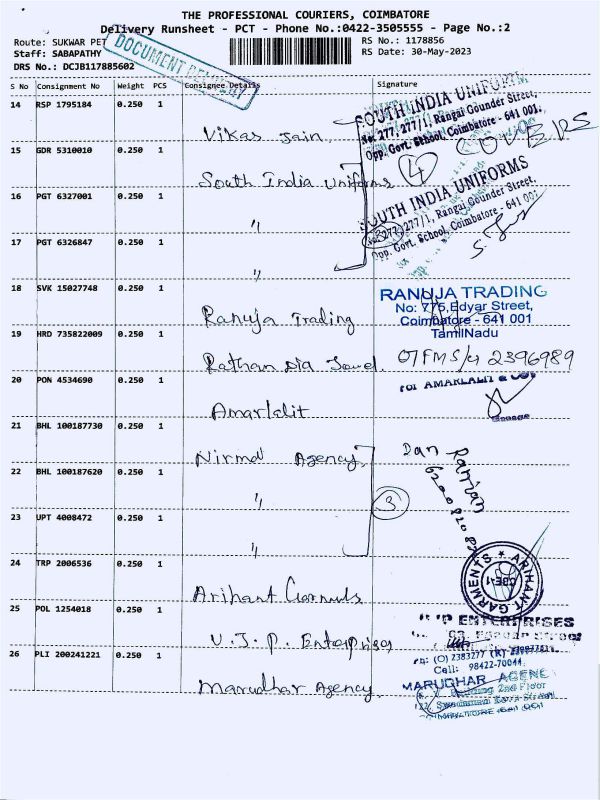 THE PROFESSIONAL COURIERS, COIMBATORE
Delivery Runsheet - PCT - Phone No.:0422-3505555 - Page No.:2
Route: SUKWAR PET
RS No.: 1178856
Staff: SABAPATHY
RS Date: 30-May-2023
DRS No.: DCJB117885602
DOCUMENT DELIVERY
S No Consignment No Weight PCS Consignee Details Signature
14 RSP 1795184 0.250 1
Vikas Jain
SOUTH INDIA UNIFORM
No: 277, 277/1, Rangai Gounder Street,
Opp. Govt. School, Coimbatore - 641 001.
4 COVERS
15 GDR 5310010 0.250 1
South India Uniforms
16 PGT 6327001 0.250 1
"
SOUTH INDIA UNIFORMS
No: 277, 277/1, Rangai Gounder Street,
Opp. Govt. School, Coimbatore - 641 001
17 PGT 6326847 0.250 1
"
18 SVK 15027748 0.250 1
Ranuja Trading
RANUJA TRADING
No: 775, Edyar Street,
Coimbatore - 641 001
TamilNadu
19 HRD 735822009 0.250 1
Rathan Dia Jewel.
2396989
20 PON 4534690 0.250 1
Amarlalit
For AMARLALIT & CO
21 BHL 100187730 0.250 1
Nirmal Agency
22 BHL 100187620 0.250 1
"
3
23 UPT 4008472 0.250 1
"
24 TRP 2006536 0.250 1
Arihant Garments
ARIHANT GARMENTS
CBE-1
25 POL 1254018 0.250 1
V.J.P. Enterprises
ENTERPRISES
Ph: (O) 2383277 (R)
Cell: 98422-70044
26 PLI 200241221 0.250 1
Marudhar Agency
MARUDHAR AGENC
Building 2nd Floor
COIMBATORE 641 001